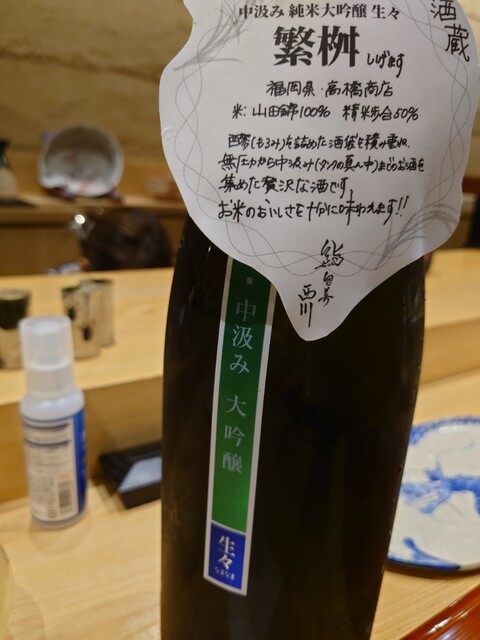 酒蔵
中汲み 純米大吟醸 生々
繁桝 しげます
福岡県・高橋商店
米:山田錦100% 精米歩合50%
西醪(もろみ)を詰めた酒袋を積み重ね、
無圧力から中汲み(タンクの真ん中)までのお酒を
集めた贅沢な酒です。
お米のおいしさを十分に味わえます!!
鮨
西川
中汲み 大吟醸
生々
なまなま